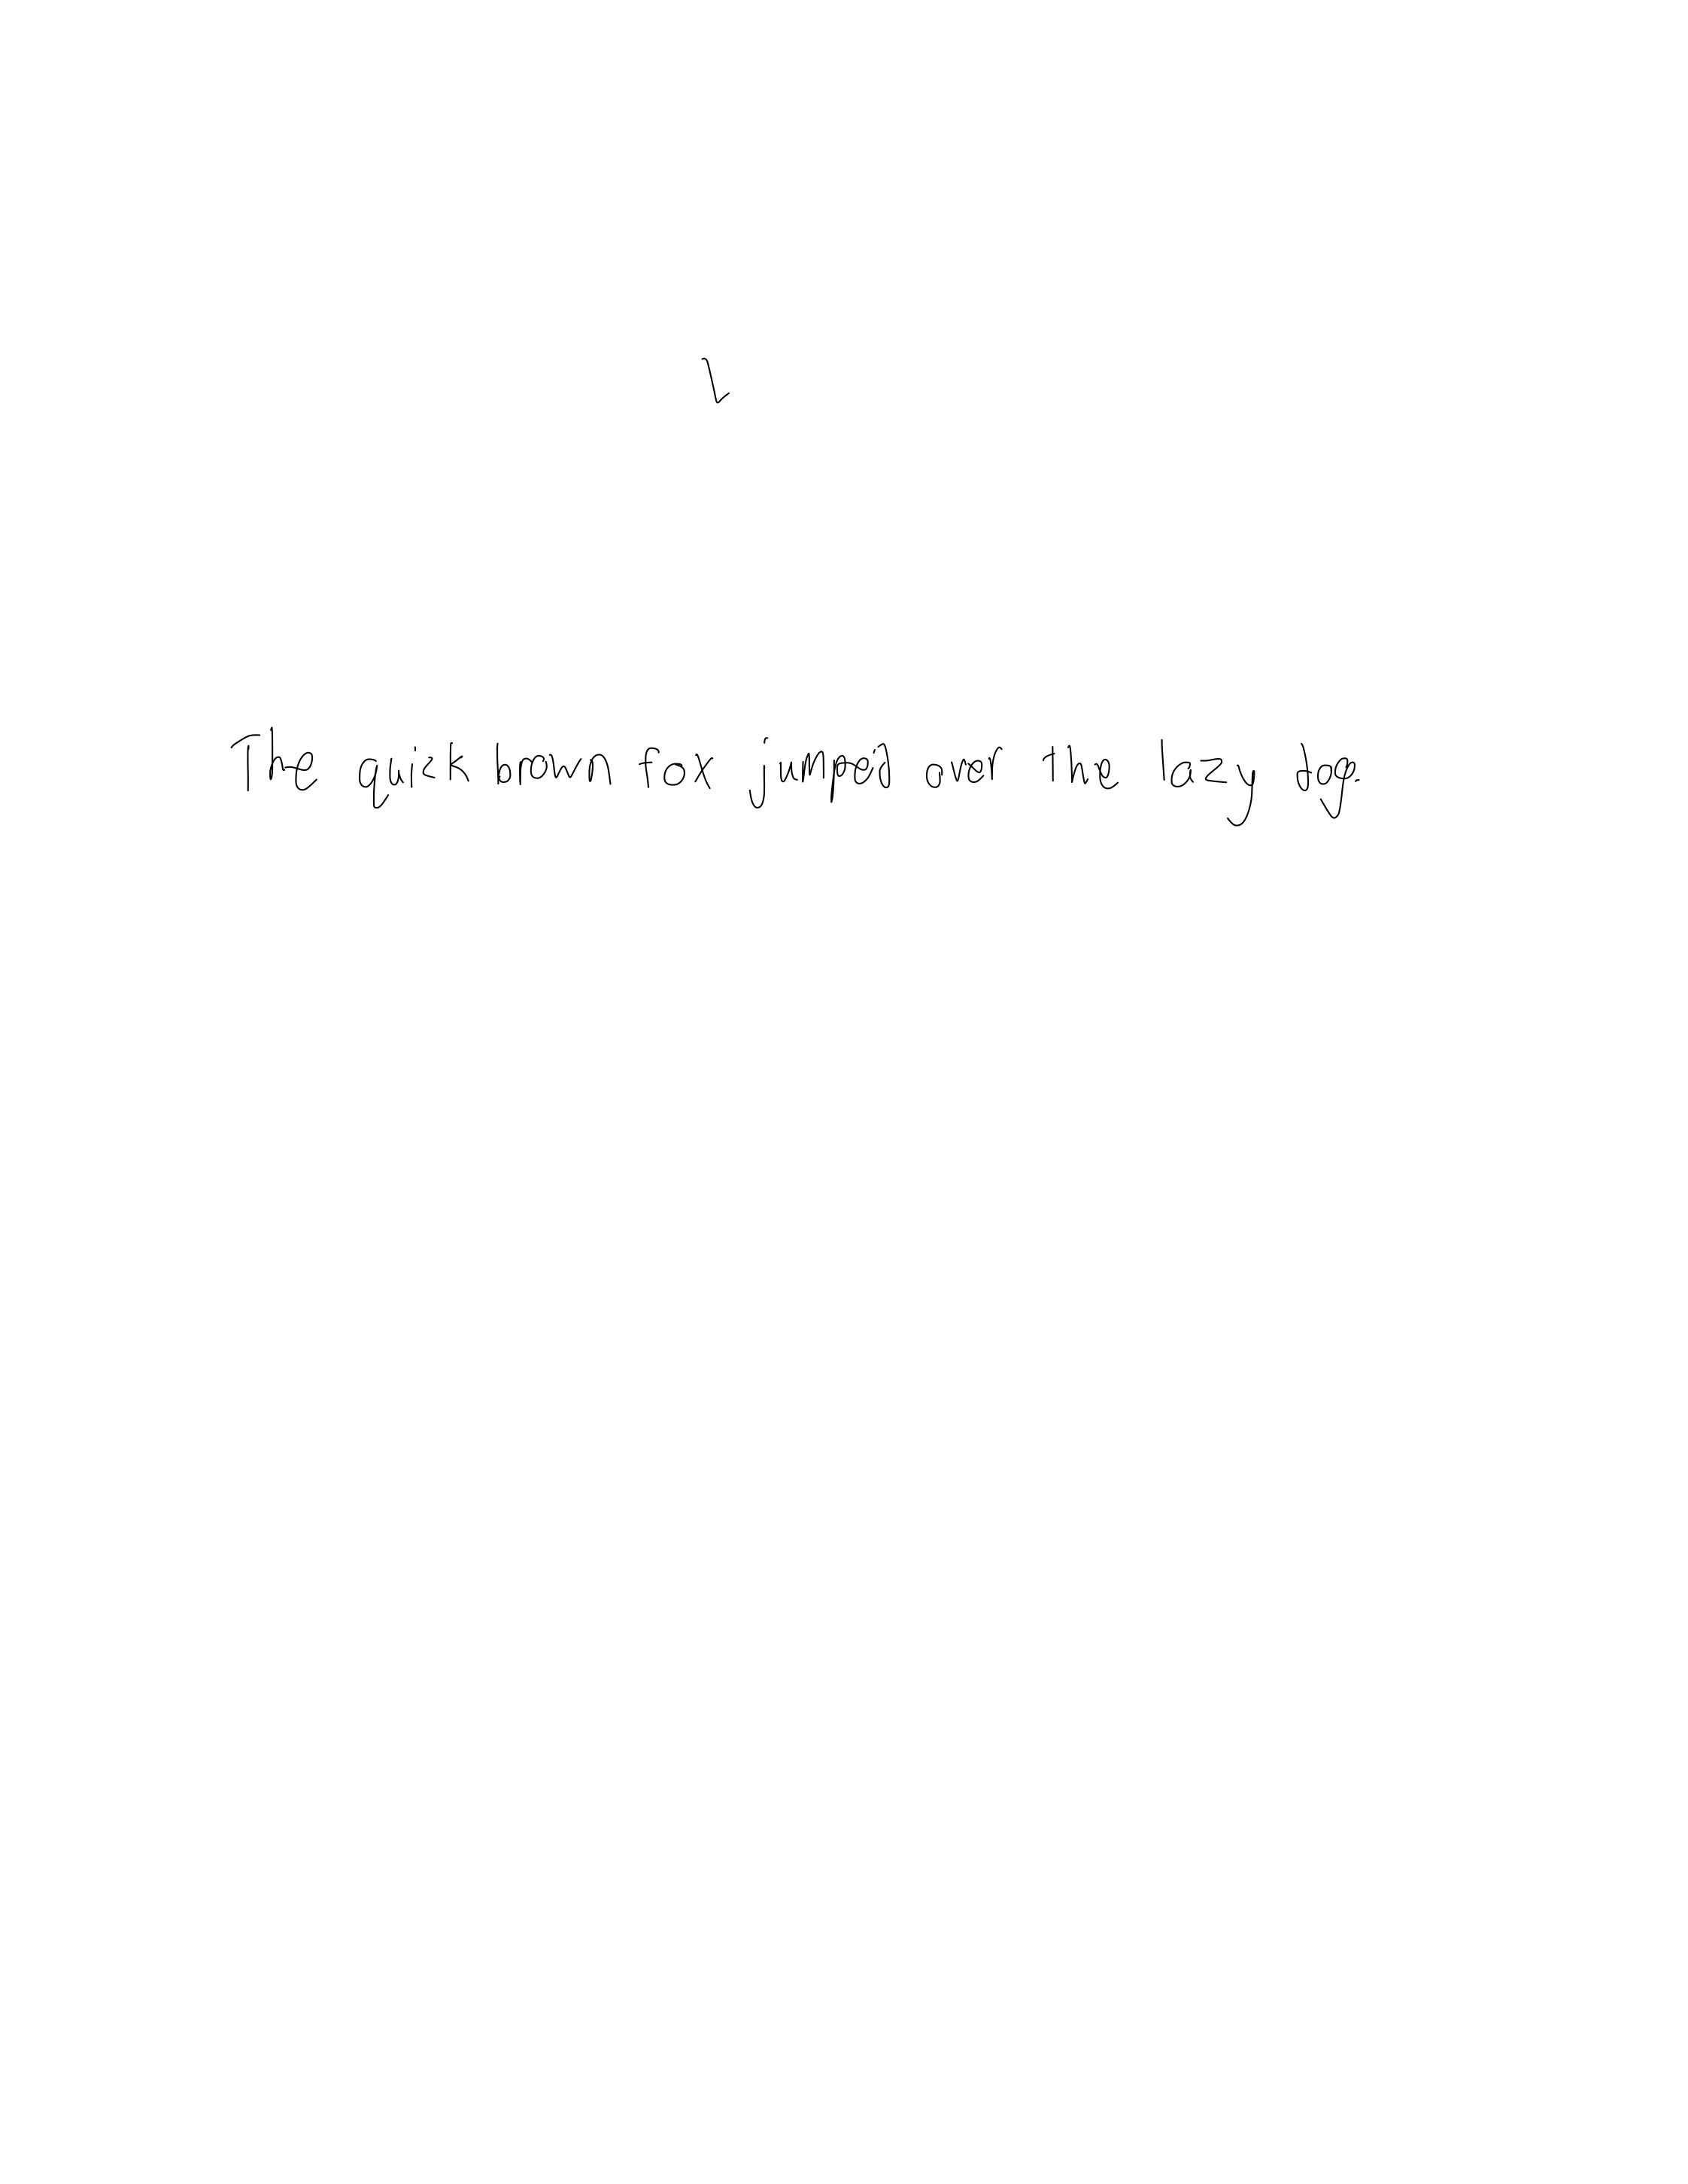 The quick brown fox jumped over the lazy dog.